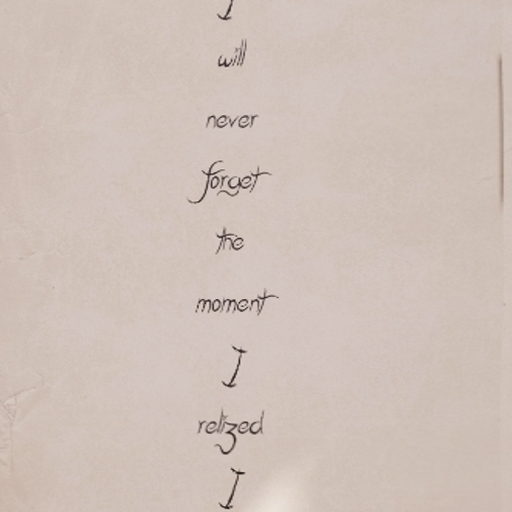 I
will
never
forget
the
moment
I
relized
I